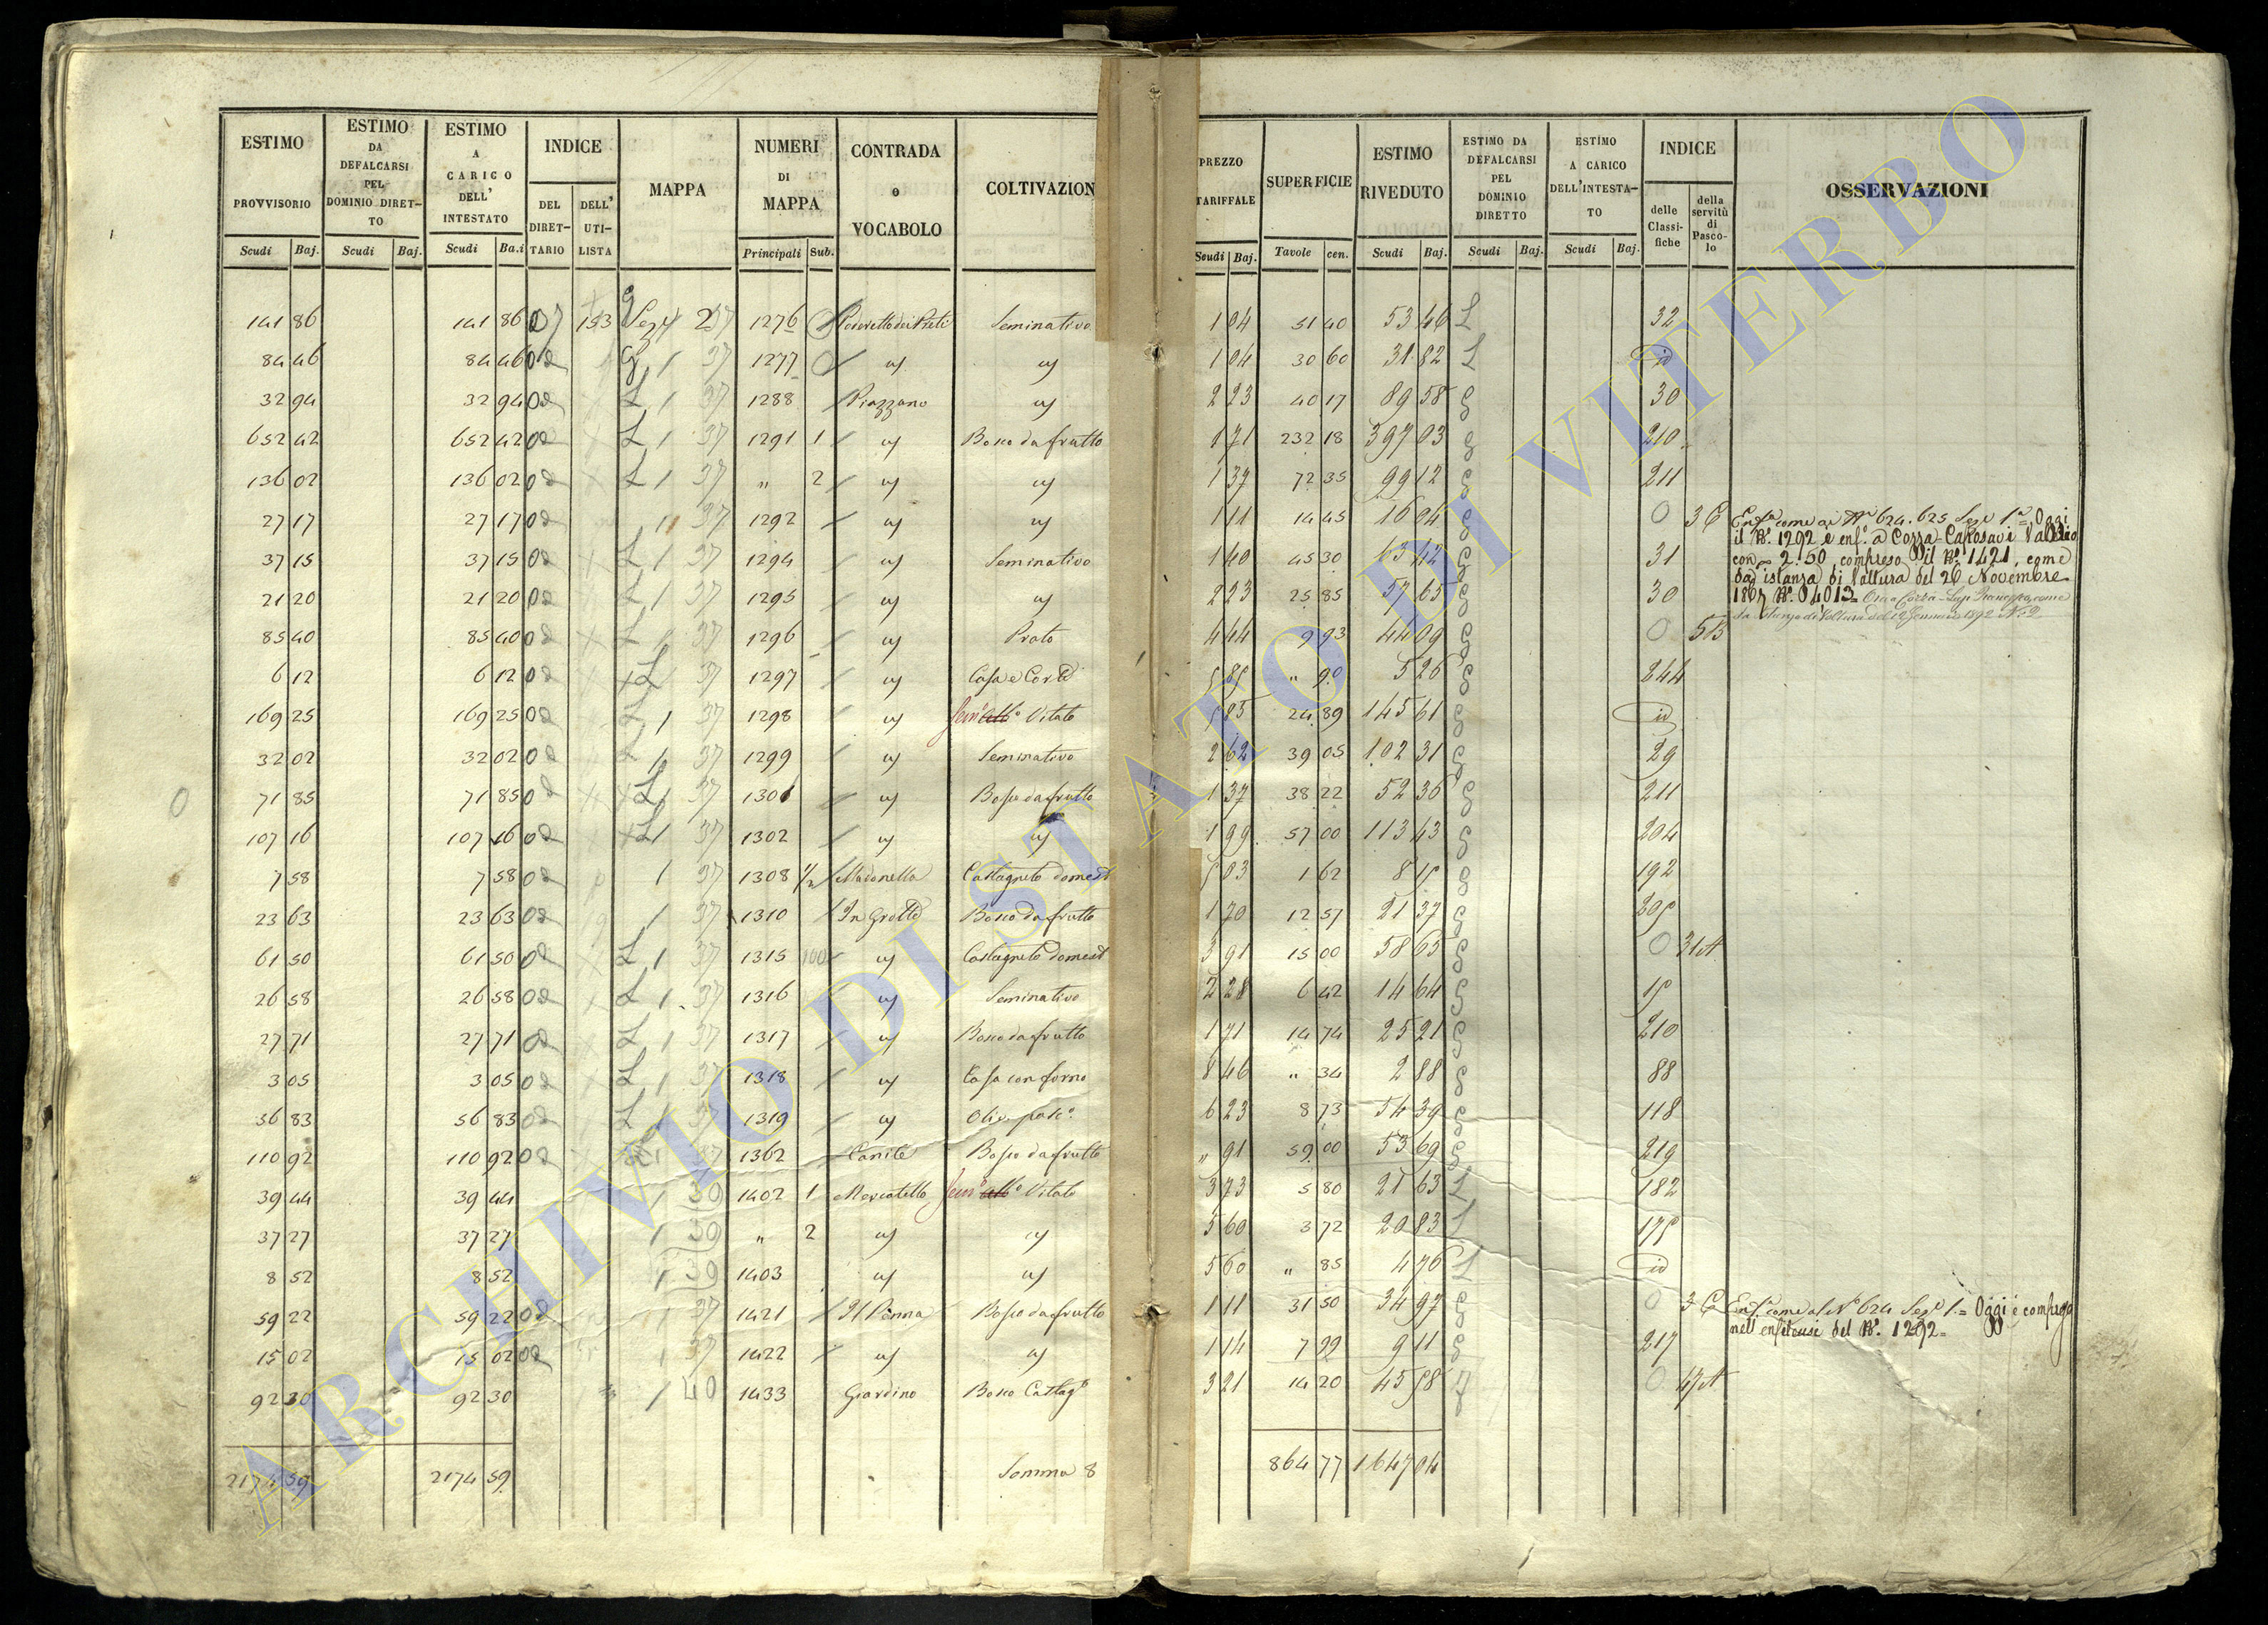 ESTIMO PROVVISORIO Scudi Baj. | ESTIMO DA DEFALCARSI PEL DOMINIO DIRETTO Scudi Baj. | ESTIMO A CARICO DELL' INTESTATO Scudi Ba.i | INDICE DEL DIRETTARIO DELL' UTILISTA | MAPPA | NUMERI DI MAPPA Principali Sub. | CONTRADA o VOCABOLO | COLTIVAZION | PREZZO TARIFFALE Scudi Baj. | SUPERFICIE Tavole cen. | ESTIMO RIVEDUTO Scudi Baj. | ESTIMO DA DEFALCARSI PEL DOMINIO DIRETTO Scudi Baj. | ESTIMO A CARICO DELL'INTESTATO Scudi Baj. | INDICE delle Classifiche della servitù di Pascolo | OSSERVAZIONI
141 86 141 86 153 1276 Seminativo 1 04 51 40 53 46 L 32
84 46 84 46 1 37 1277 1 04 30 60 31 82 L id
32 94 32 94 L 1 37 1288 Piazzano 2 23 40 17 89 58 30
652 42 652 42 L 1 37 1291 1 Bosco da frutto 1 71 232 18 397 03 210
136 02 136 02 L 1 37 " 2 1 37 72 35 99 12 211
27 17 27 17 37 1292 1 11 14 45 16 04 0 3 C Enf. come ai Nri 624. 625 Sez. 1a = Oggi
il No. 1292 è enf. a Cozza-Caposavi Valerio
37 15 37 15 L 1 37 1294 Seminativo 1 40 45 30 63 42 31 con 2.50 compreso il No. 1421, come
da istanza di Voltura del 26 Novembre
21 20 21 20 L 1 37 1295 2 23 25 85 57 65 30
85 40 85 40 L 1 37 1296 Prato 4 44 9 93 44 09 0 5 B
6 12 6 12 L 37 1297 Casa e Corte 5 85 " 90 5 26 244
169 25 169 25 L 1 37 1298 Vitato 5 85 24 89 145 61 id
32 02 32 02 L 1 37 1299 Seminativo 2 62 39 05 102 31 29
71 85 71 85 L 1 37 1301 Bosco da frutto 1 37 38 22 52 36 211
107 16 107 16 L 1 37 1302 1 99 57 00 113 43 204
7 58 7 58 1 37 1308 Madonella Castagneto domest 5 03 1 62 8 15 192
23 63 23 63 1 37 1310 In Grotte Bosco da frutto 1 70 12 57 21 37 205
61 50 61 50 L 1 37 1315 100 Castagneto domest 3 91 15 00 58 65 0 31 A
26 58 26 58 L 1 37 1316 Seminativo 2 28 6 42 14 64 15
27 71 27 71 L 1 37 1317 Bosco da frutto 1 71 14 74 25 21 210
3 05 3 05 L 1 37 1318 Casa con forno 8 46 " 34 2 88 88
56 83 56 83 L 1 37 1319 Oliv. pasc. 6 23 8 73 54 39 118
110 92 110 92 37 1362 Canite Bosco da frutto " 91 59 00 53 69 219
39 44 39 44 1 39 1402 1 Mercatello Vitato 3 73 5 80 21 63 L 182
37 27 37 27 1 39 " 2 5 60 3 72 20 83 175
8 52 8 52 1 39 1403 5 60 " 85 4 76 L id
59 22 59 22 1 37 1421 Il Penna Bosco da frutto 1 11 31 50 34 97 0 3 C Enf. come al No 624 Sez. 1 = Oggi è compreso
nell'enfiteusi del No. 1292 =
15 02 15 02 1 37 1422 1 14 7 99 9 11 217
92 30 92 30 1 40 1433 Giardino Bosco Castag. 3 21 14 20 45 58 0 47 A
2174 59 2174 59 Somma 8 864 77 1647 04
ARCHIVIO DI STATO DI VITERBO